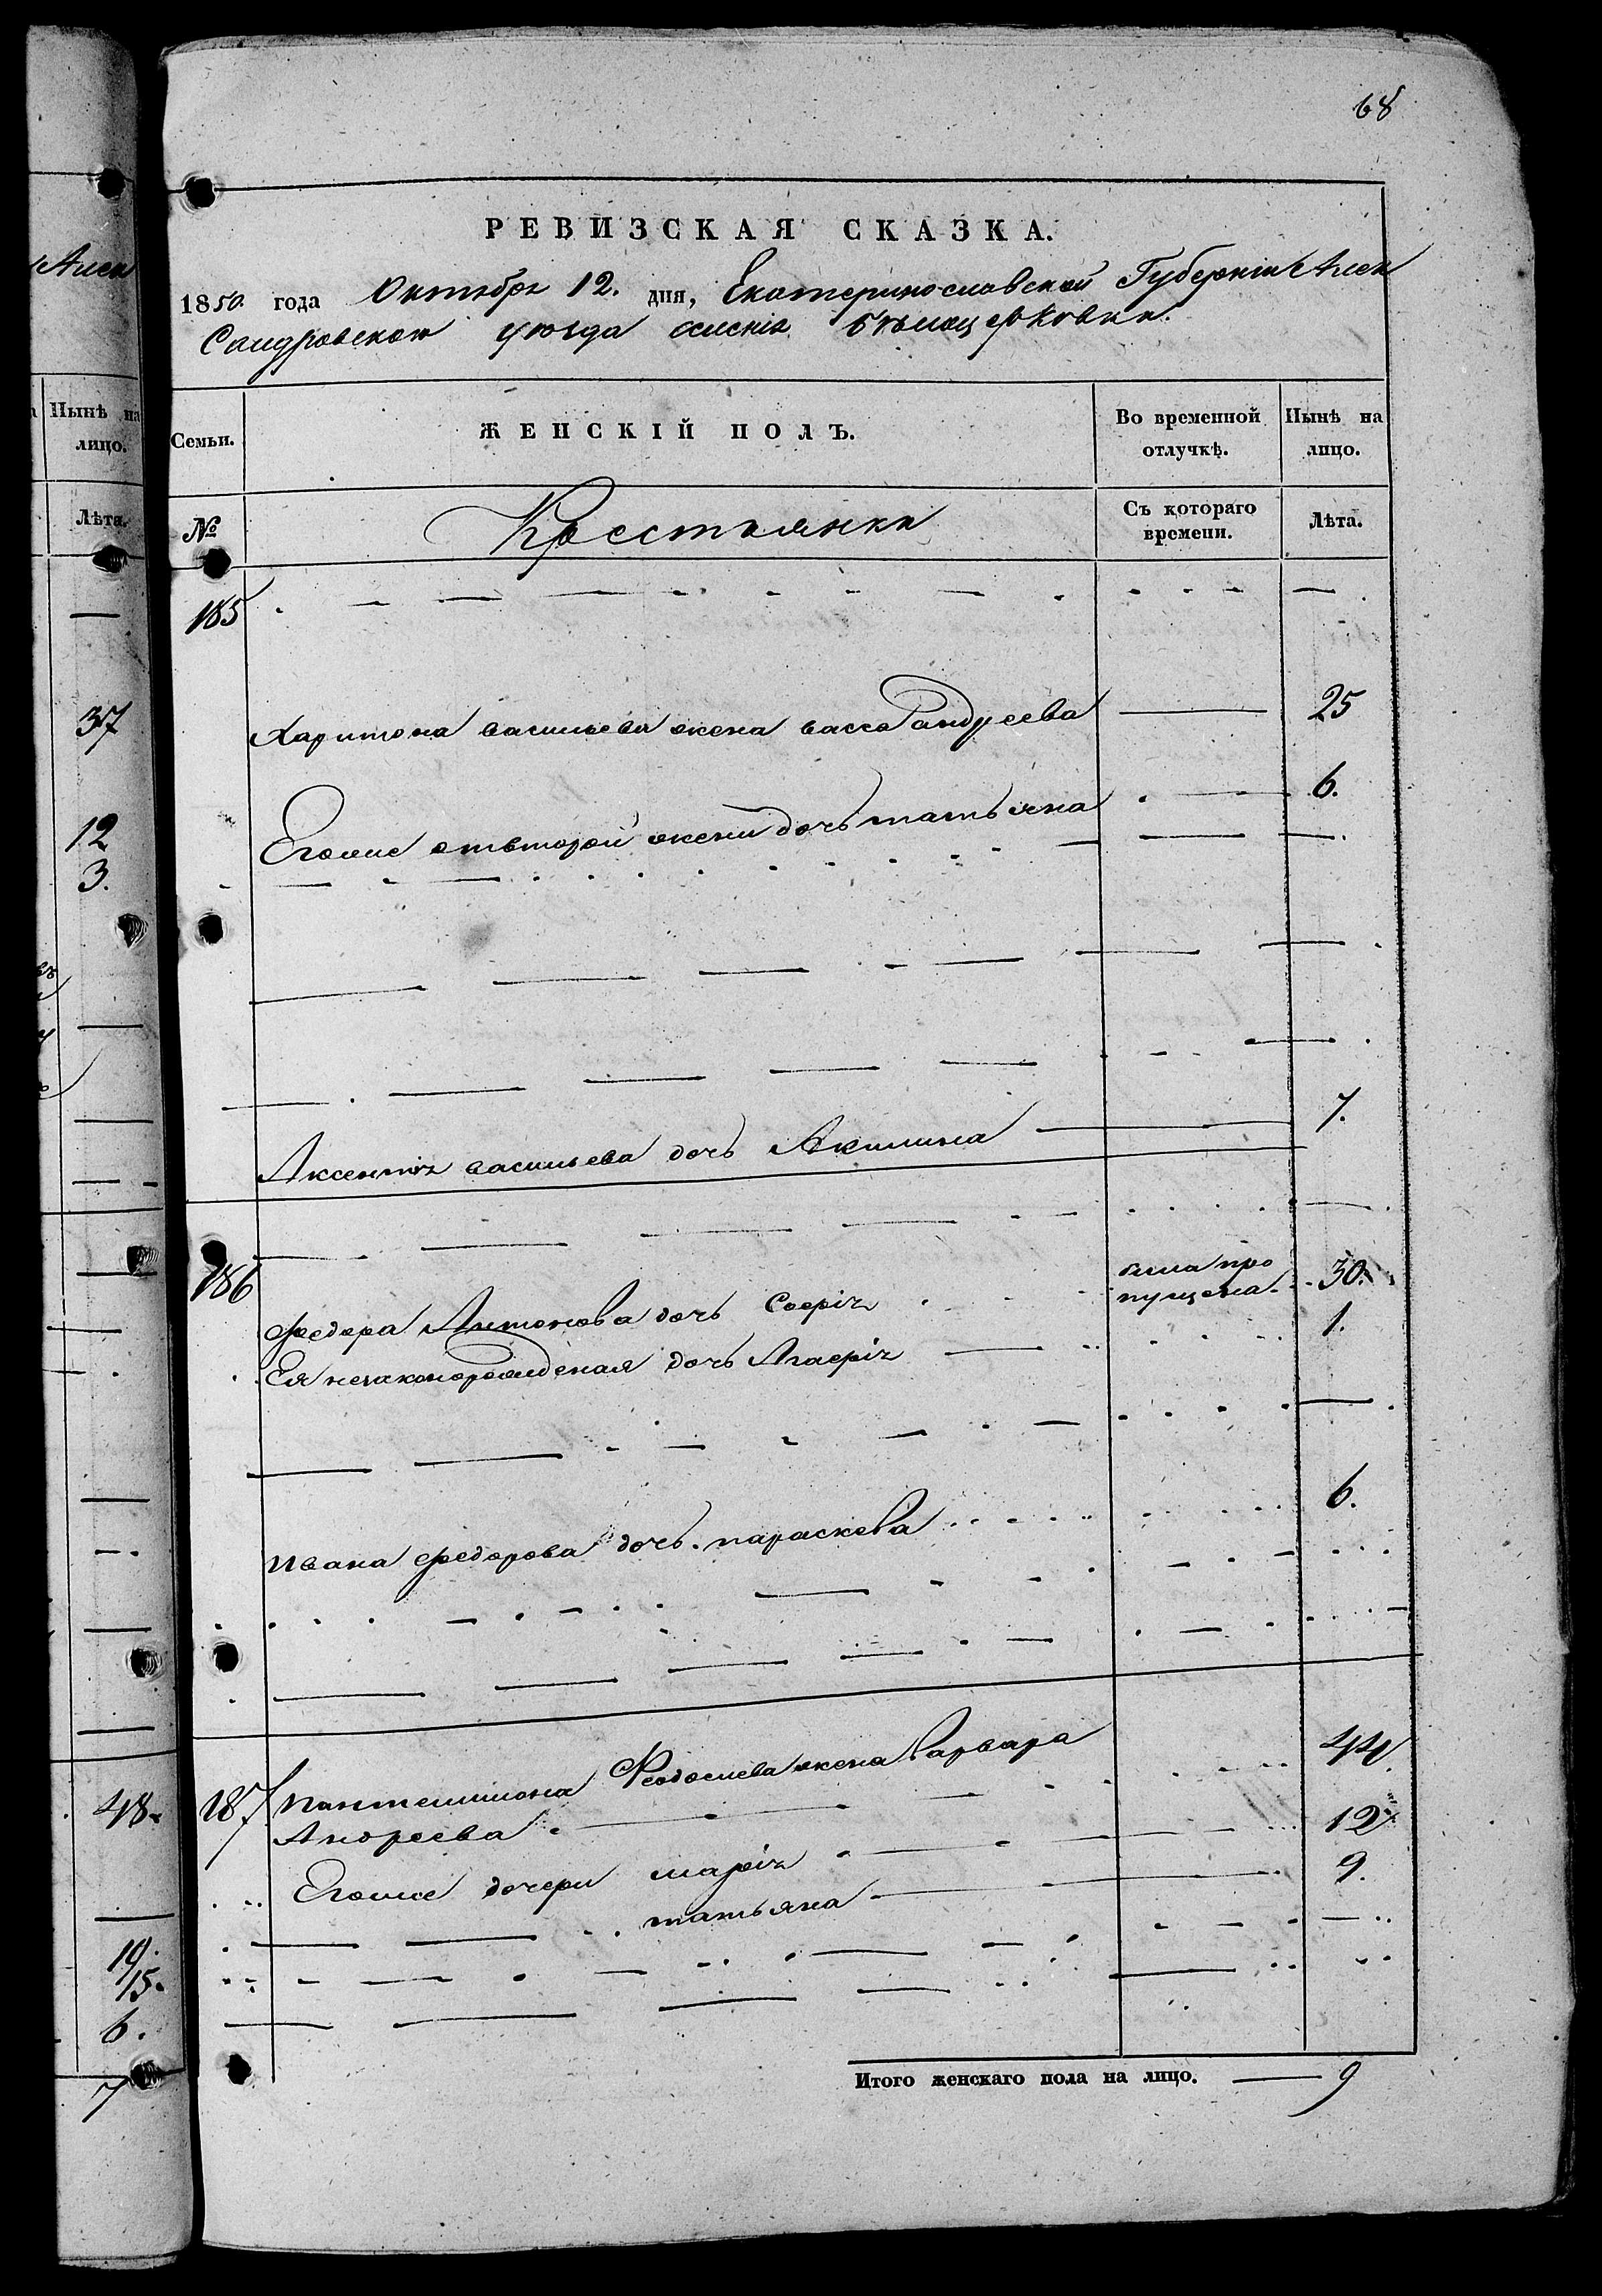 68
РЕВИЗСКАЯ СКАЗКА.
1850 года Октября 12. дня, Екатеринославской Губерніи Алек
Сандровскаго уѣзда селенія Бѣлоцерковки.
Семьи.
ЖЕНСКІЙ ПОЛЪ.
Во временной отлучкѣ.
Нынѣ на лицо.
№
Крестьянки
Съ котораго времени.
Лѣта.
185
Харитона васильева жена васса андреева 25
Егоже отвторой жены дочь татьяна 6.
Аксентія васильева дочь Акилина 7.
186
Федора Антонова дочь Софія была про пущена 30.
Ея незаконорожденая дочь Агафія 1.
Ивана Федорова дочь параскева 6.
187 Пантелимона Феодосиева жена Варвара 44
Андреева
Егоже дочери марія 12
татьяна 9.
Итого женскаго пола на лицо. 9
Алек
Нынѣ на лицо.
Лѣта.
37
12
3.
48
19.
15.
6.
7